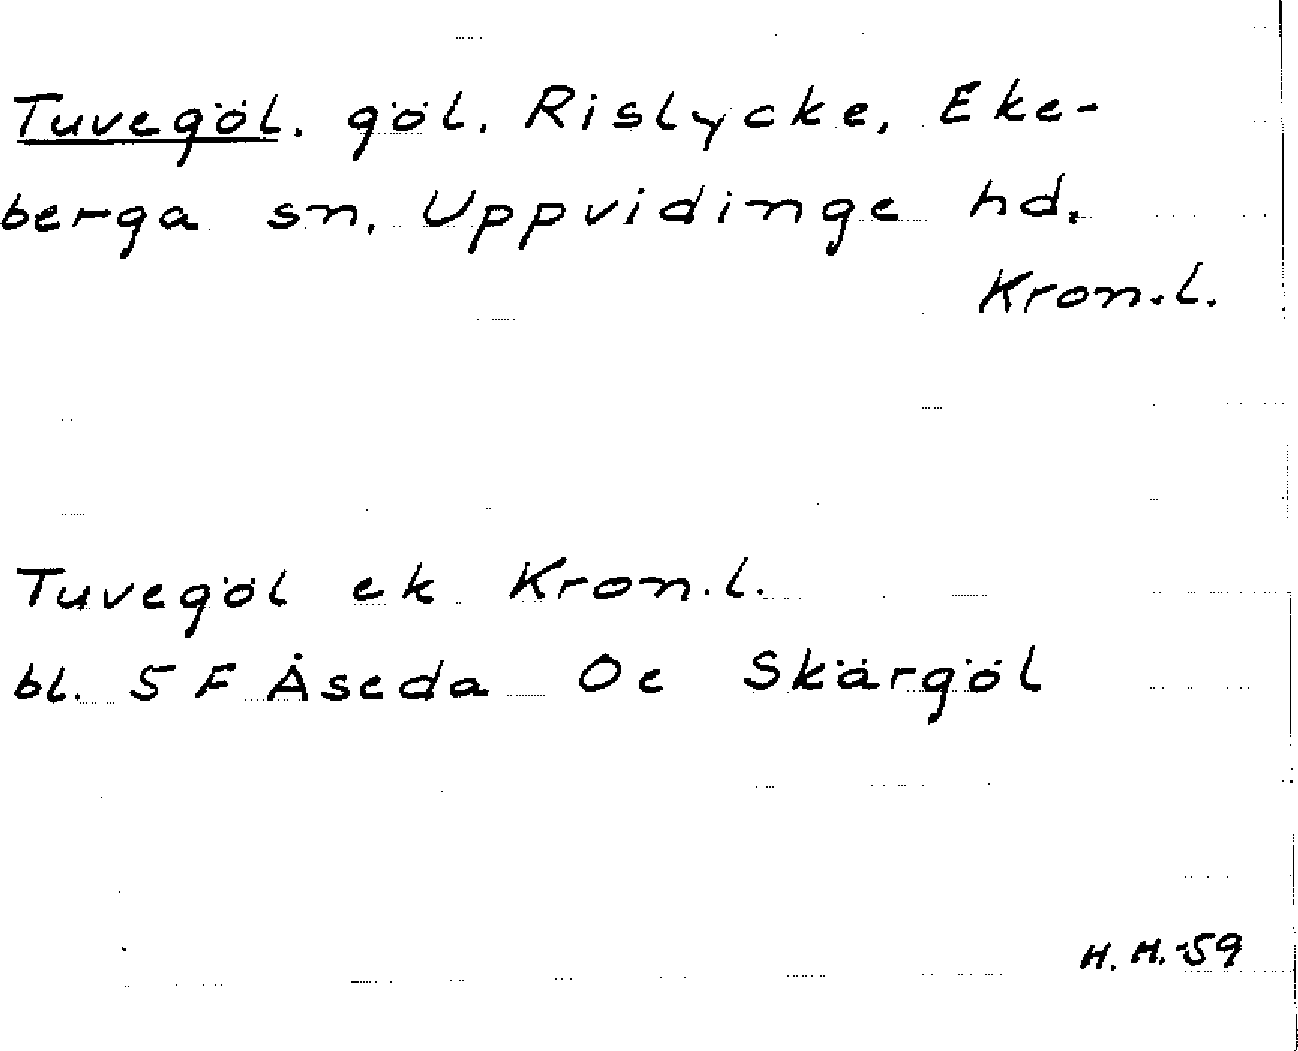 Tuvegöl. göl. Rislycke, Eke-
berga sn. Uppvidinge hd.
Kron.l.
Tuvegöl ek Kron.l.
bl. 5 F Åseda Oe Skärgöl
H. H. -59